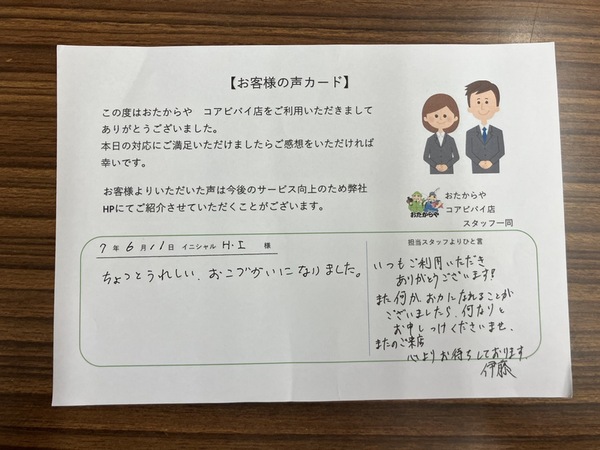 【お客様の声カード】
この度はおたからや　コアビバイ店をご利用いただきまして
ありがとうございました。
本日の対応にご満足いただけましたらご感想をいただければ
幸いです。
お客様よりいただいた声は今後のサービス向上のため弊社
HPにてご紹介させていただくことがございます。
おたからや
おたからや
コアビバイ店
スタッフ一同
7年6月11日 イニシャル H・I 様
ちょっとうれしい おこづかいになりました。
担当スタッフよりひと言
いつもご利用いただき
ありがとうございます!
また何かお力になれることが
ございましたら、何なりと
お申しつけくださいませ、
またのご来店
心よりお待ちしております
伊藤